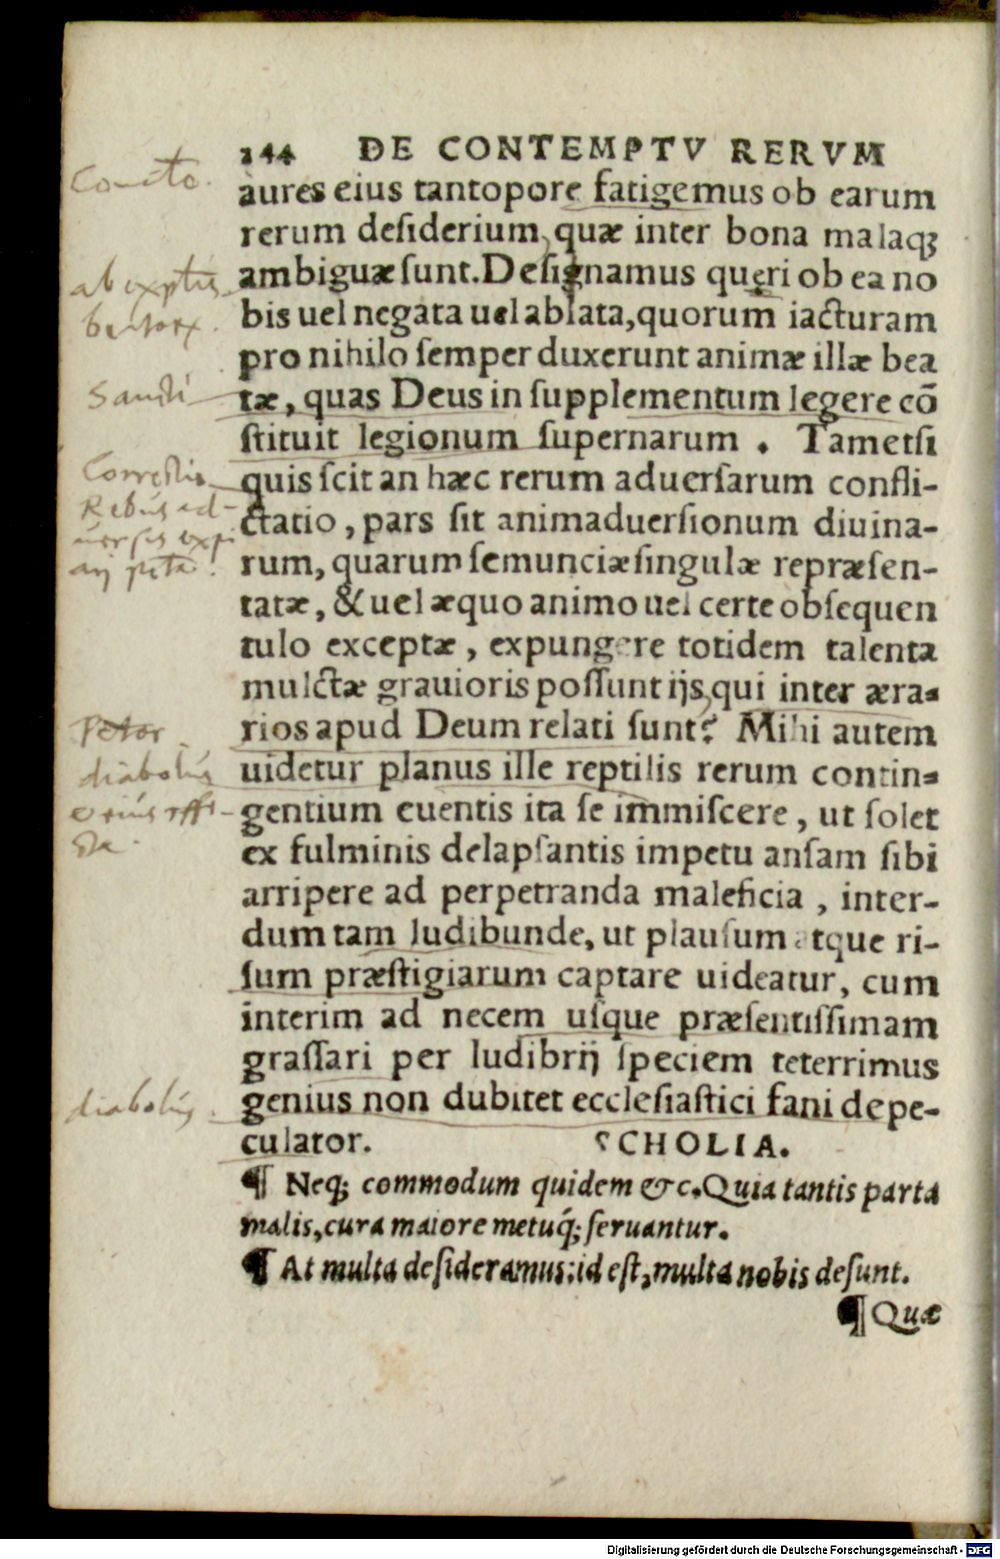 144 DE CONTEMPTV RERVM
aures eius tantopore fatigemus ob earum
rerum desiderium, quæ inter bona malaqꝫ
ambiguæ sunt. Designamus queri ob ea no
bis uel negata uel ablata, quorum iacturam
pro nihilo semper duxerunt animæ illæ bea
tæ, quas Deus in supplementum legere cō
stituit legionum supernarum. Tametsi
quis scit an hæc rerum aduersarum confli-
ctatio, pars sit animaduersionum diuina-
rum, quarum semunciæ singulæ repræsen-
tatæ, & uel æquo animo uel certe obsequen
tulo exceptæ, expungere totidem talenta
mulctæ grauioris possunt ijs, qui inter æra-
rios apud Deum relati sunt? Mihi autem
uidetur planus ille reptilis rerum contin-
gentium euentis ita se immiscere, ut solet
ex fulminis delapsantis impetu ansam sibi
arripere ad perpetranda maleficia, inter-
dum tam ludibunde, ut plausum atque ri-
sum præstigiarum captare uideatur, cum
interim ad necem usque præsentissimam
grassari per ludibrij speciem teterrimus
genius non dubitet ecclesiastici fani depe-
culator. SCHOLIA.
¶ Neqꝫ commodum quidem &c. Quia tantis parta
malis, cura maiore metuq́ꝫ seruantur.
¶ At multa desideramus: id est, multa nobis desunt.
¶ Quæ
Sancti
diabolus
diabolus
Digitalisierung gefördert durch die Deutsche Forschungsgemeinschaft - DFG